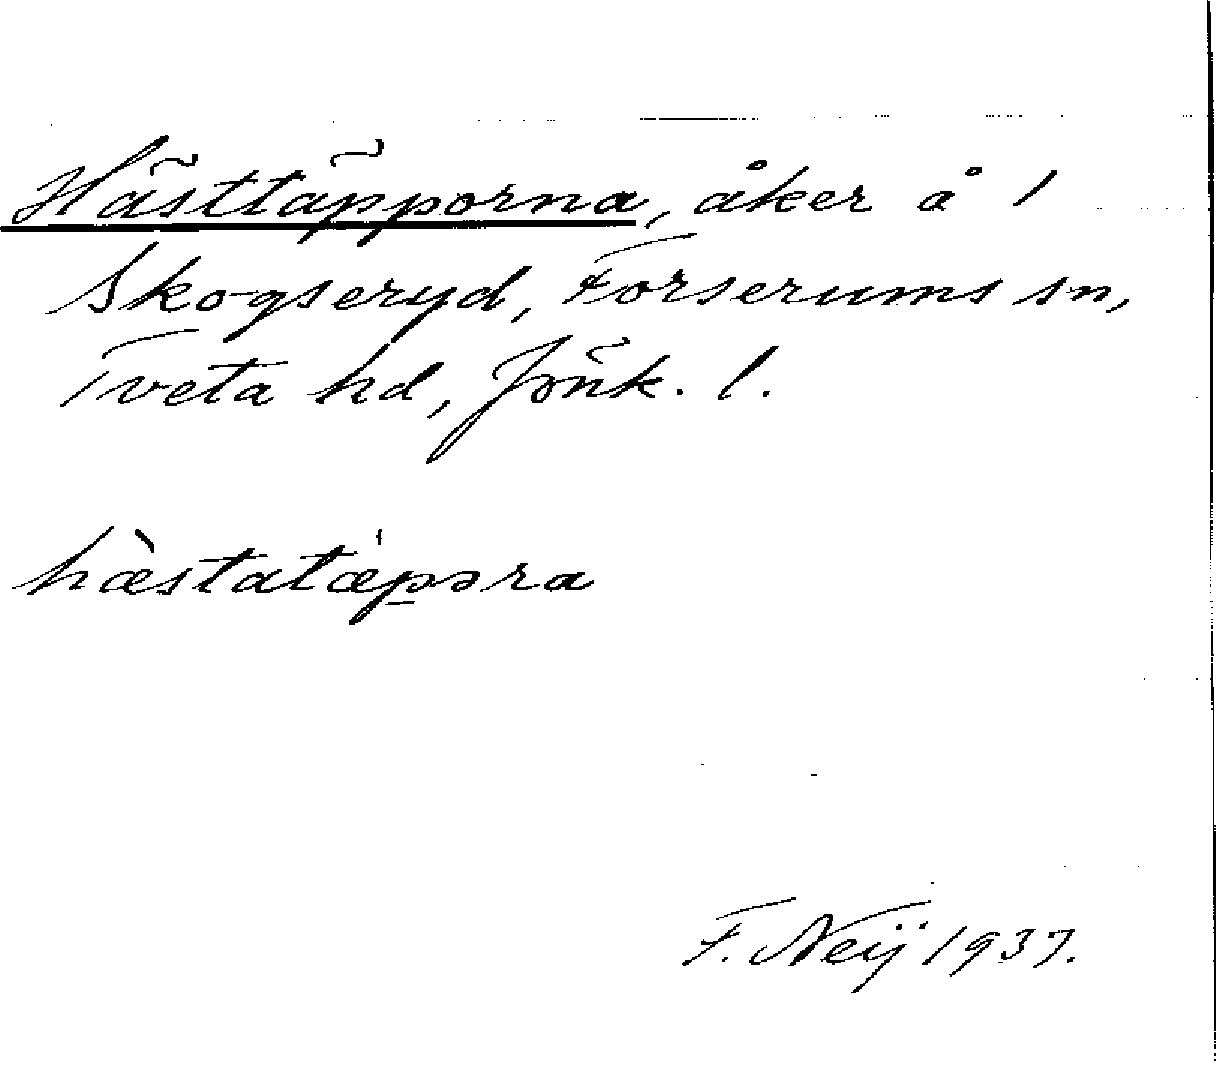 Hästtäpporna, åker å 1
Skogseryd, Forserums sn,
Tveta hd, Jönk. l.
hæ̀statæ̍p̠əra
F. Neij 1937.